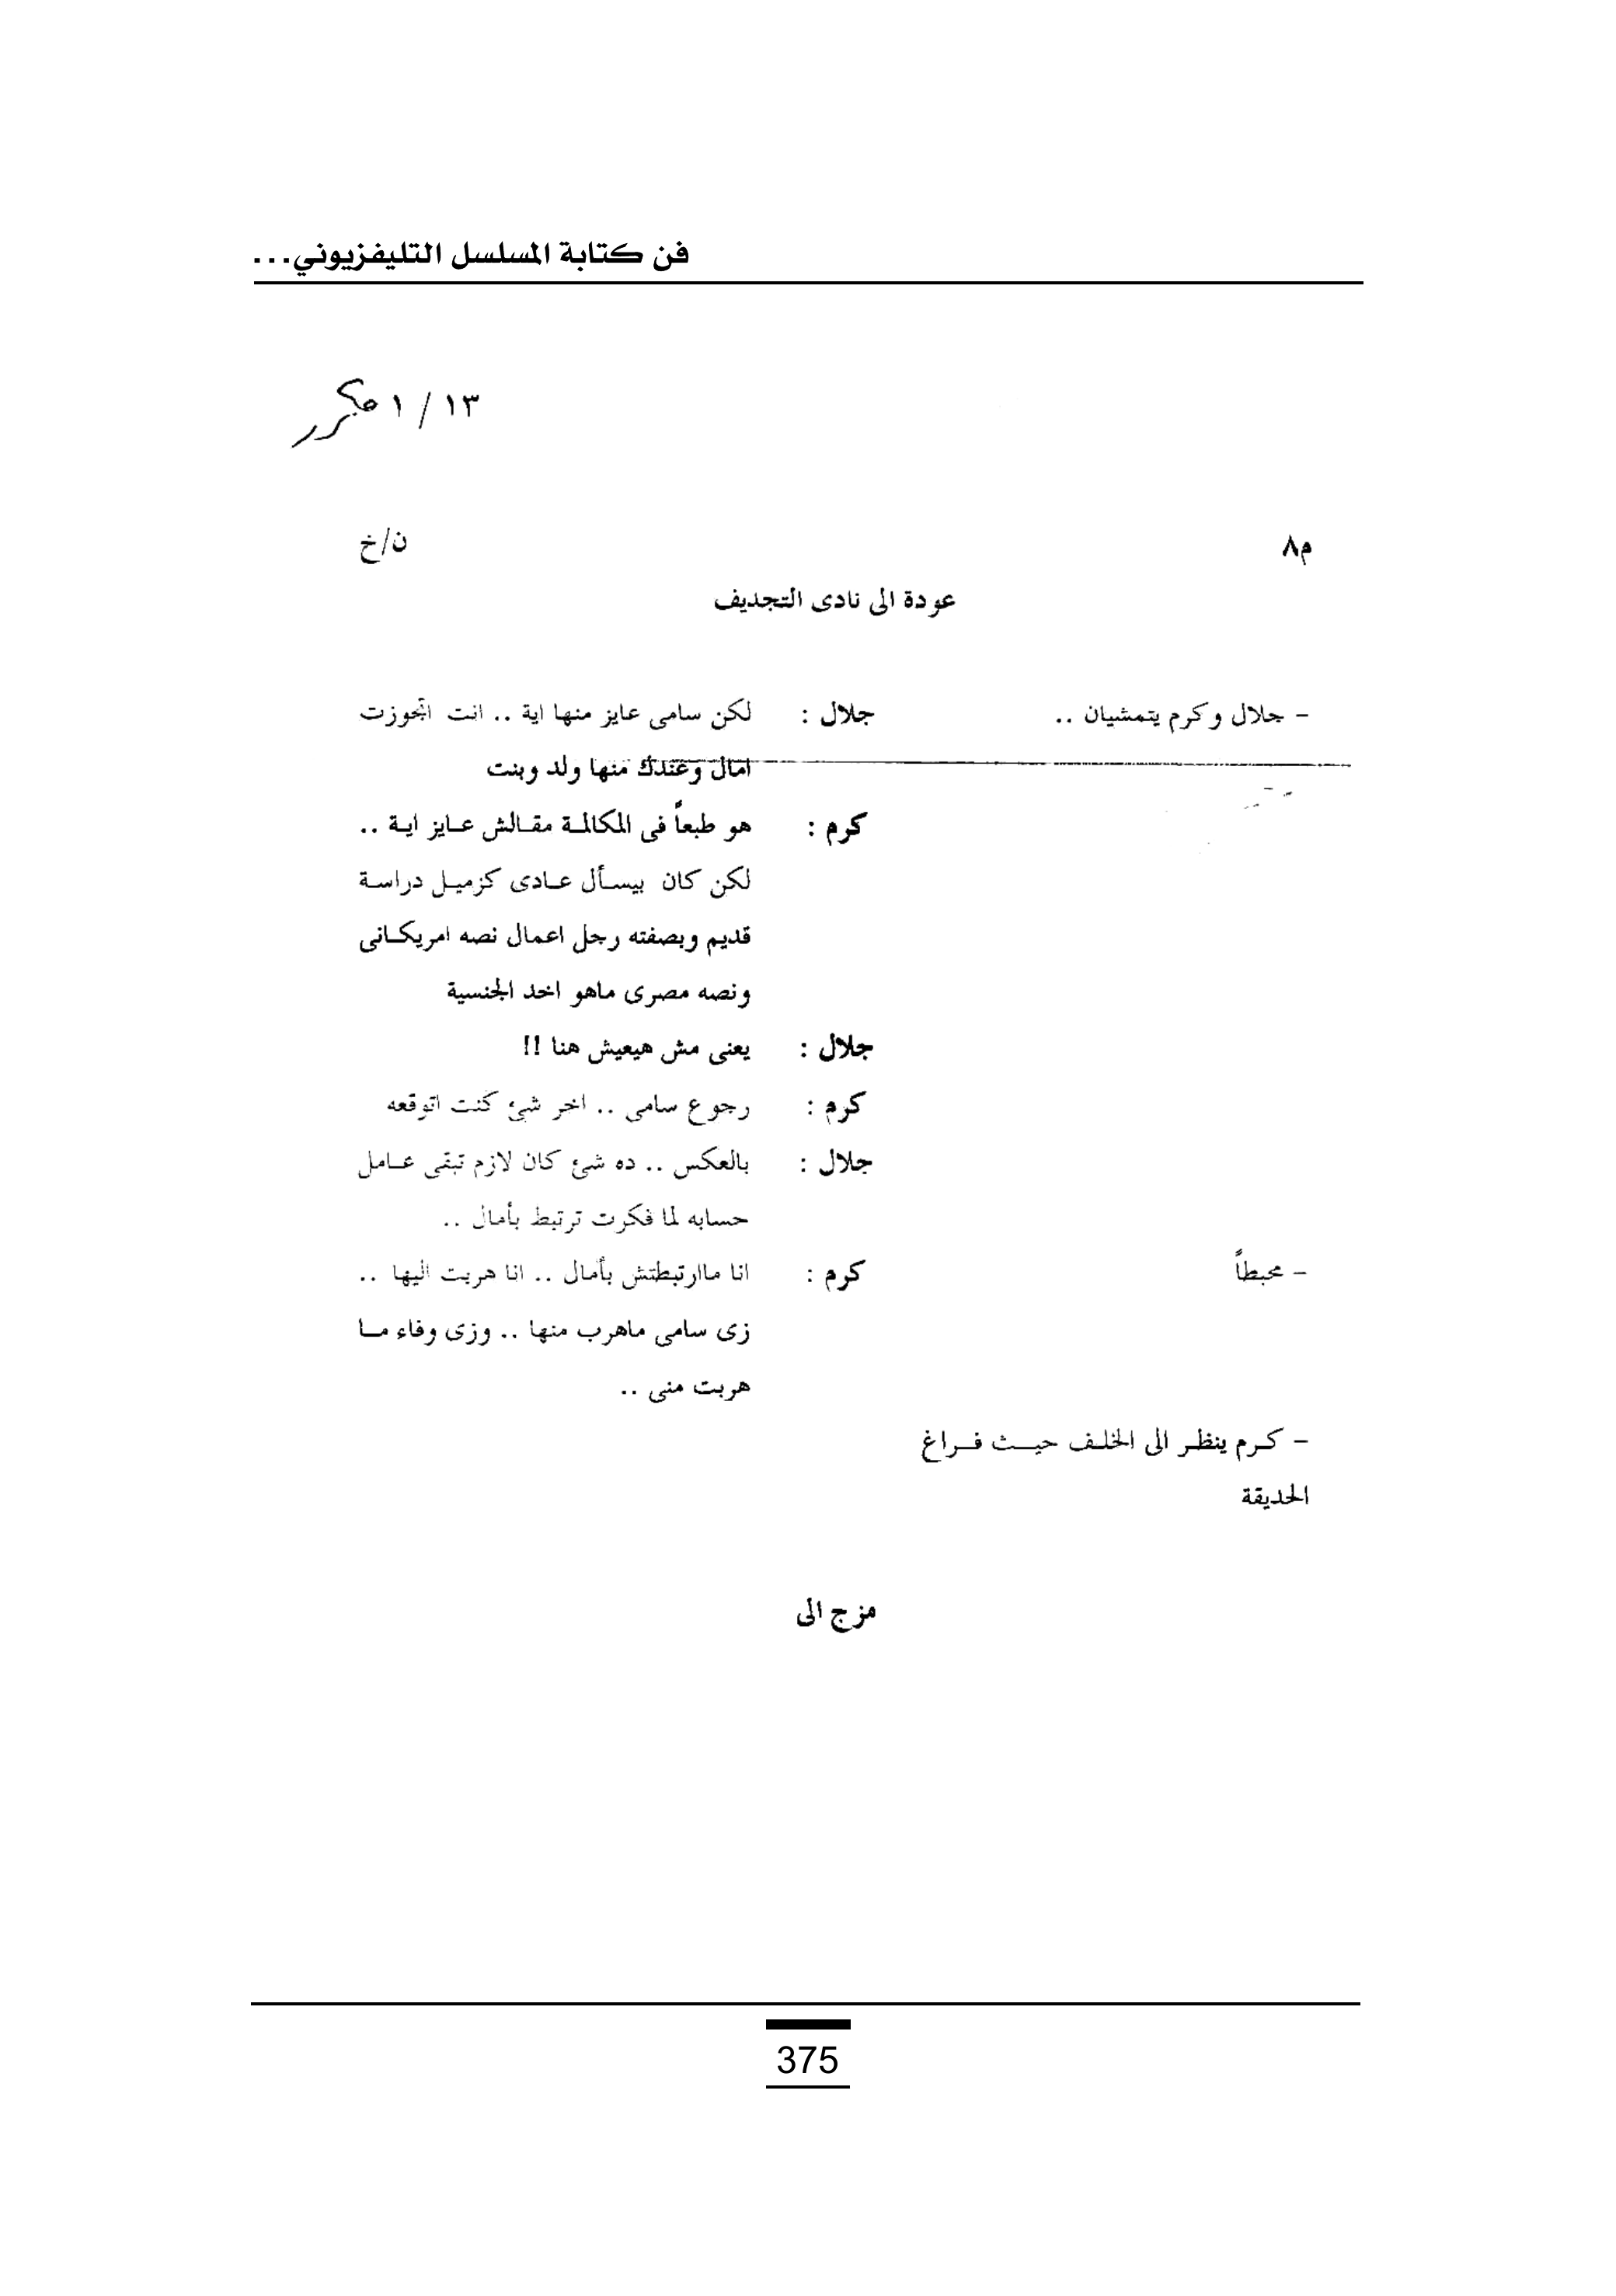 فن كتابة المسلسل التليفزيوني...
١٣ / ١ مكرر
م٨ ن/خ
عودة الى نادى التجديف
- جلال وكرم يتمشيان .. جلال : لكن سامى عايز منها اية .. انت اتجوزت
امال وعندك منها ولد وبنت
كرم : هو طبعاً فى المكالمة مقالش عايز اية ..
لكن كان بيسأل عادى كزميل دراسة
قديم وبصفته رجل اعمال نصه امريكانى
ونصه مصرى ماهو اخد الجنسية
جلال : يعنى مش هيعيش هنا !!
كرم : رجوع سامى .. اخر شئ كنت اتوقعه
جلال : بالعكس .. ده شئ كان لازم تبقى عامل
حسابه لما فكرت ترتبط بأمال ..
- محبطاً كرم : انا ماارتبطتش بأمال .. انا هربت اليها ..
زى سامى ماهرب منها .. وزى وفاء ما
هربت منى ..
- كرم ينظر الى الخلف حيث فراغ
الحديقة
مزج الى
375